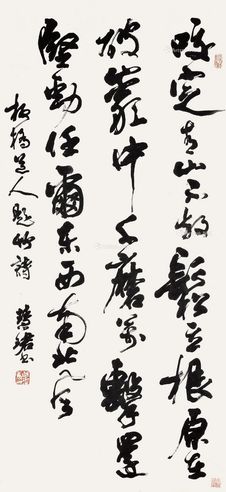 咬定青山不放鬆立根原在
破巖中千磨萬擊還
堅勁任爾东西南北风
板橋道人題竹詩 慧珺书